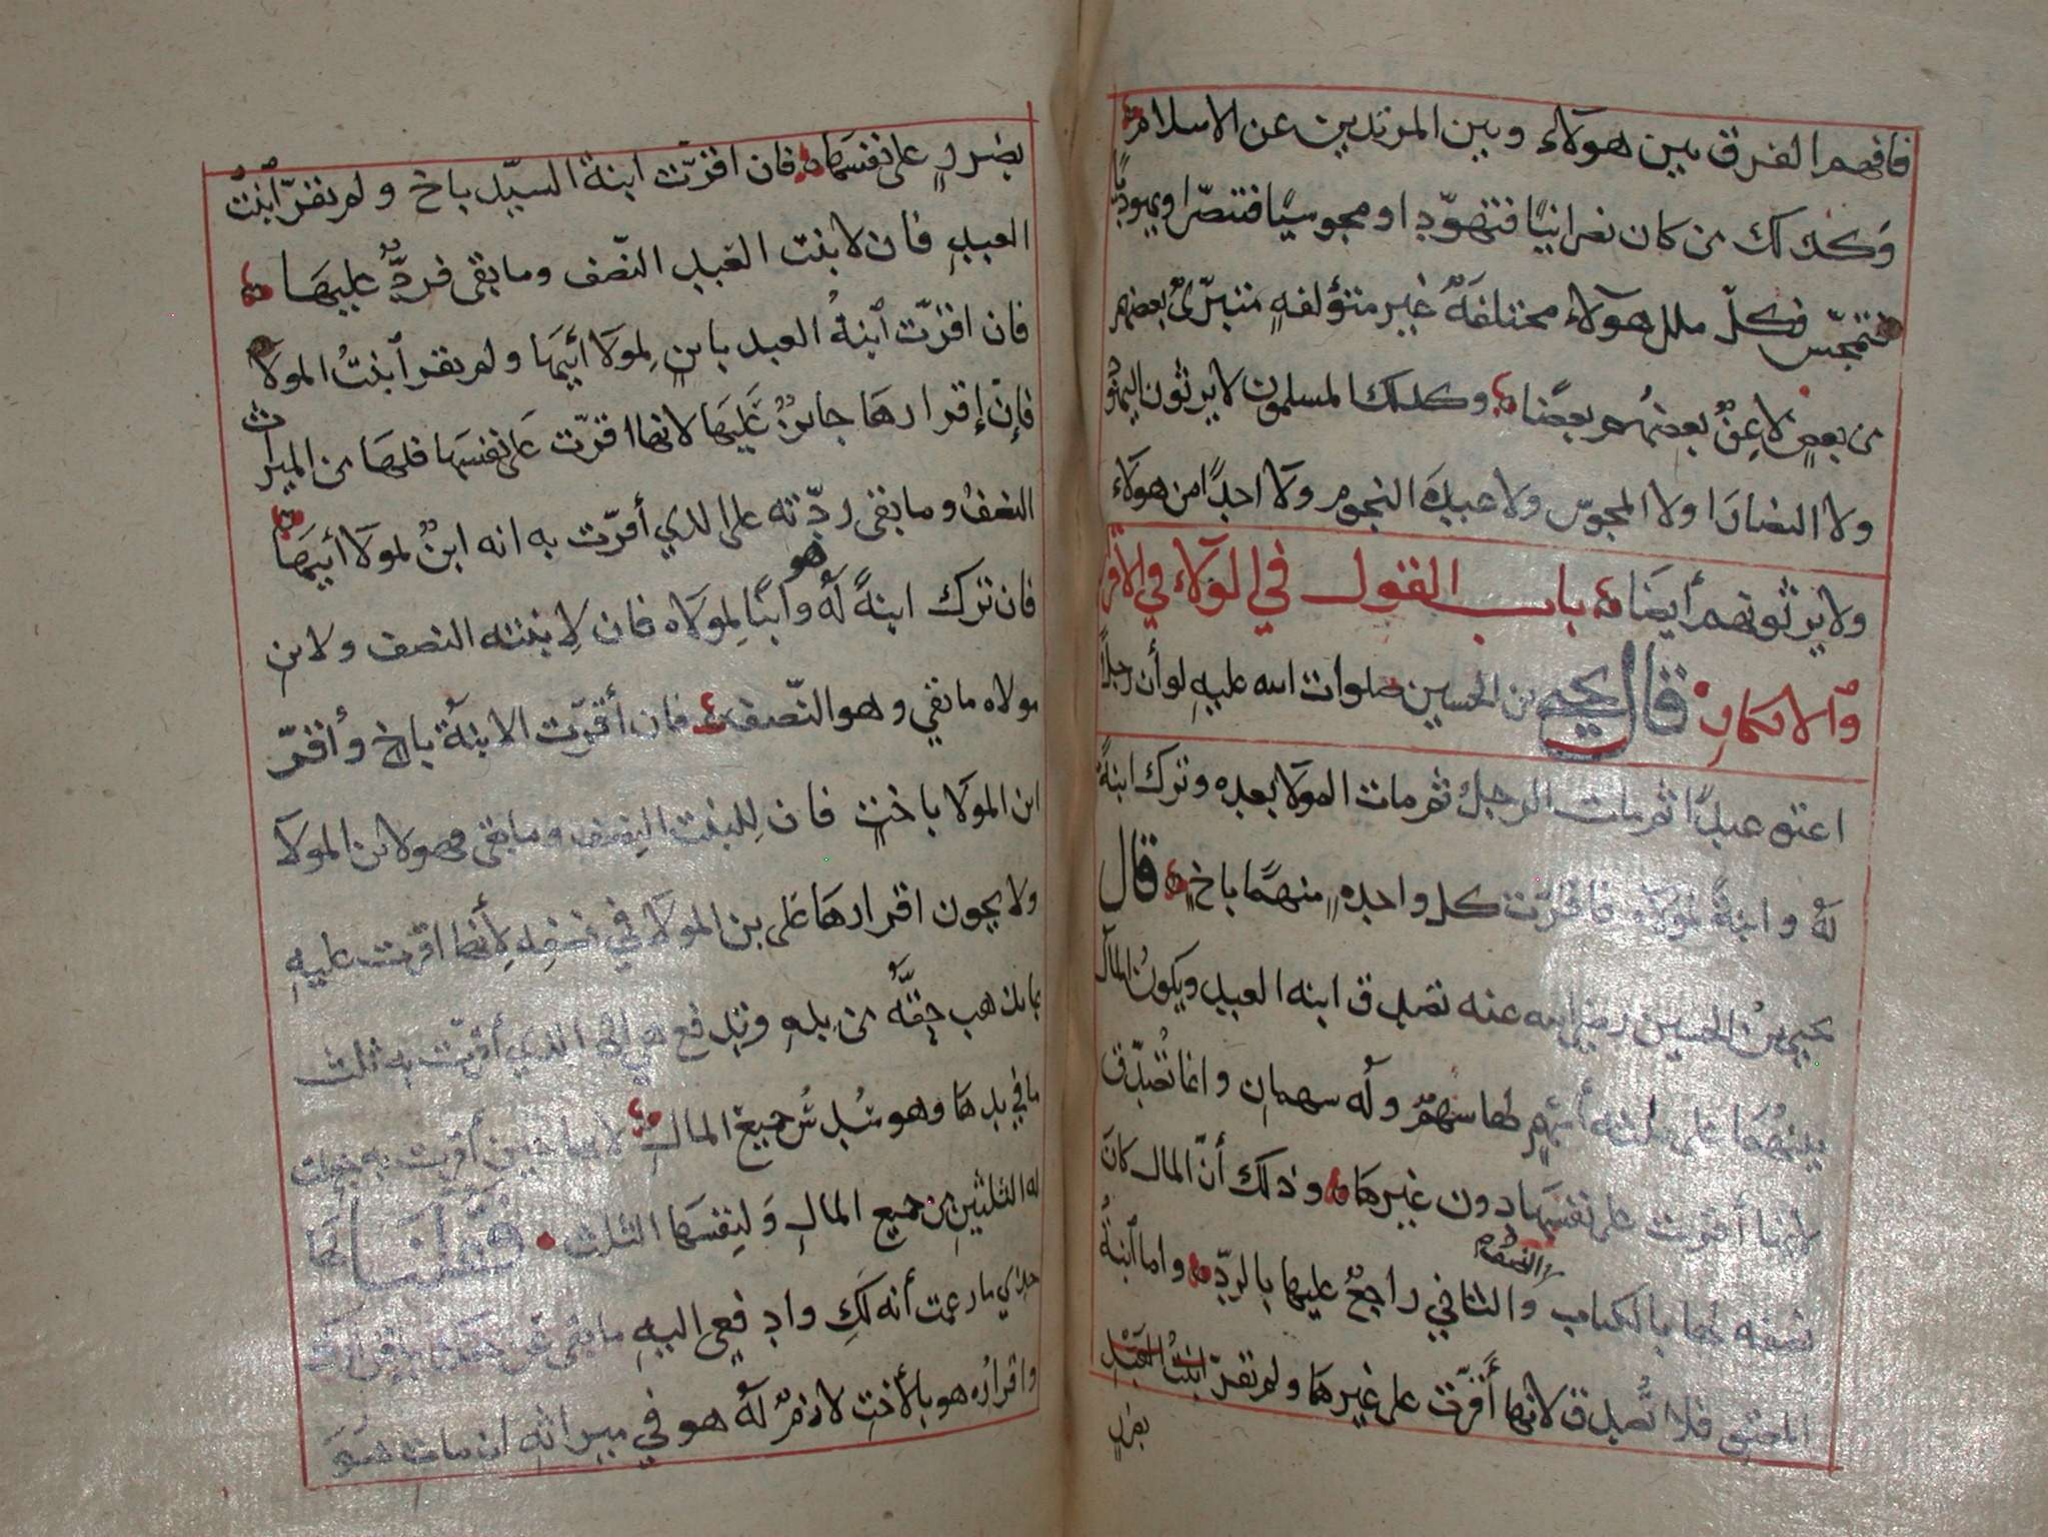 فافهم الفرق بين هولآء وبين المرتدين عن الاسلام
وكذلك من كان نصرانيًا فتهوّد او مجوسيًا فتنصّر او يهوديًا
فتمجّس فكلّ ملل هولآء مختلفةٌ غير متؤلفةٍ متبرّئ بعضهم
من بعضٍ لا يرث بعضهم بعضًا وكذلك المسلمون لا يرثون اليهود
ولا النصارا ولا المجوس ولا عبدة النجوم ولا احدًا من هولاء
ولا يرثونهم أيضا باب القول في الولآء في الاقرار
والانكار قال يحيى بن الحسين صلوات الله عليهِ لو أن رجلاً
اعتق عبدًا ثم مات الرجلُ ثم مات المولا بعده وترك ابنةً
لهُ وابنةً لمولاه فاقرّت كل واحدهٍ منهما باخٍ قال
يحيى بنُ الحسين رضي الله عنه تصدق ابنه العبد ويكونُ المال
بينهُما على ثلثه أسهمٍ لها سهمٌ وله سهمان وانما تُصدّق
لانها أقرت على نفسها دون غيرها وذلك أنّ المال كان
نصفه لها بالكتاب والثاني راجعٌ عليها بالردّ واما ابنةُ
المعتق فلا تُصدق لانها أقرّت على غيرها ولم تقرّ ابنتُ العبد
بضررٍ
بضررٍ على نفسها فان اقرّت ابنة السيّد باخ ولم تقرّ ابنتُ
العبدِ فان لابنت العبد النّصف وما بقى فردٌّ عليها
فان اقرّت ابنةُ العبد بابنٍ لمولا أبيها ولم تقر ابنتُ المولا
فإنّ إقرارها جائزٌ عليها لانها اقرّت على نفسها فلها من الميراث
النصفُ وما بقى ردّته على الذي أقرّت به انه ابنٌ لمولا أبيها
فان ترك هو ابنةً لهُ وابنًا لمولاه فان لابنته النصف ولابن
مولاه ما بقي وهو النّصف فان أقرّت الابنةُ باخٍ وأقرّ
ابن المولا باختٍ فان للبنت النصف وما بقى فهو لابن المولا
ولا يجوز اقرارها على بن المولا في نصفه لأنها اقرت عليهِ
بما يذهب حقّهُ من يدهِ وتدفع هي إلى الذي أقرّت به ثلث
ما في يدها وهو سُدسُ جميع المال لانها حين أقرت به جعلت
له الثلثين من جميع المالِ ولنفسها الثلث فقلنا لها
خذي ما زعمت أنه لكِ وادفعي اليهِ ما بقى
واقرارُه هو بالأختِ لازمٌ لهُ هو في ميراثهِ ان مات هو